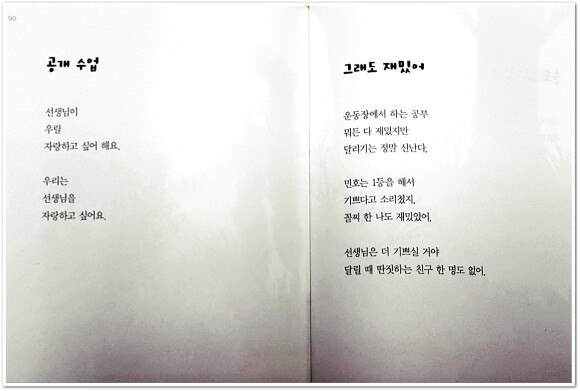 90
공개 수업
선생님이
우릴
자랑하고 싶어 해요.
우리는
선생님을
자랑하고 싶어요.
그래도 재밌어
운동장에서 하는 공부
뭐든 다 재밌지만
달리기는 정말 신난다.
민호는 1등을 해서
기쁘다고 소리쳤지.
꼴찌 한 나도 재밌었어.
선생님은 더 기쁘실 거야
달릴 때 딴짓하는 친구 한 명도 없어.